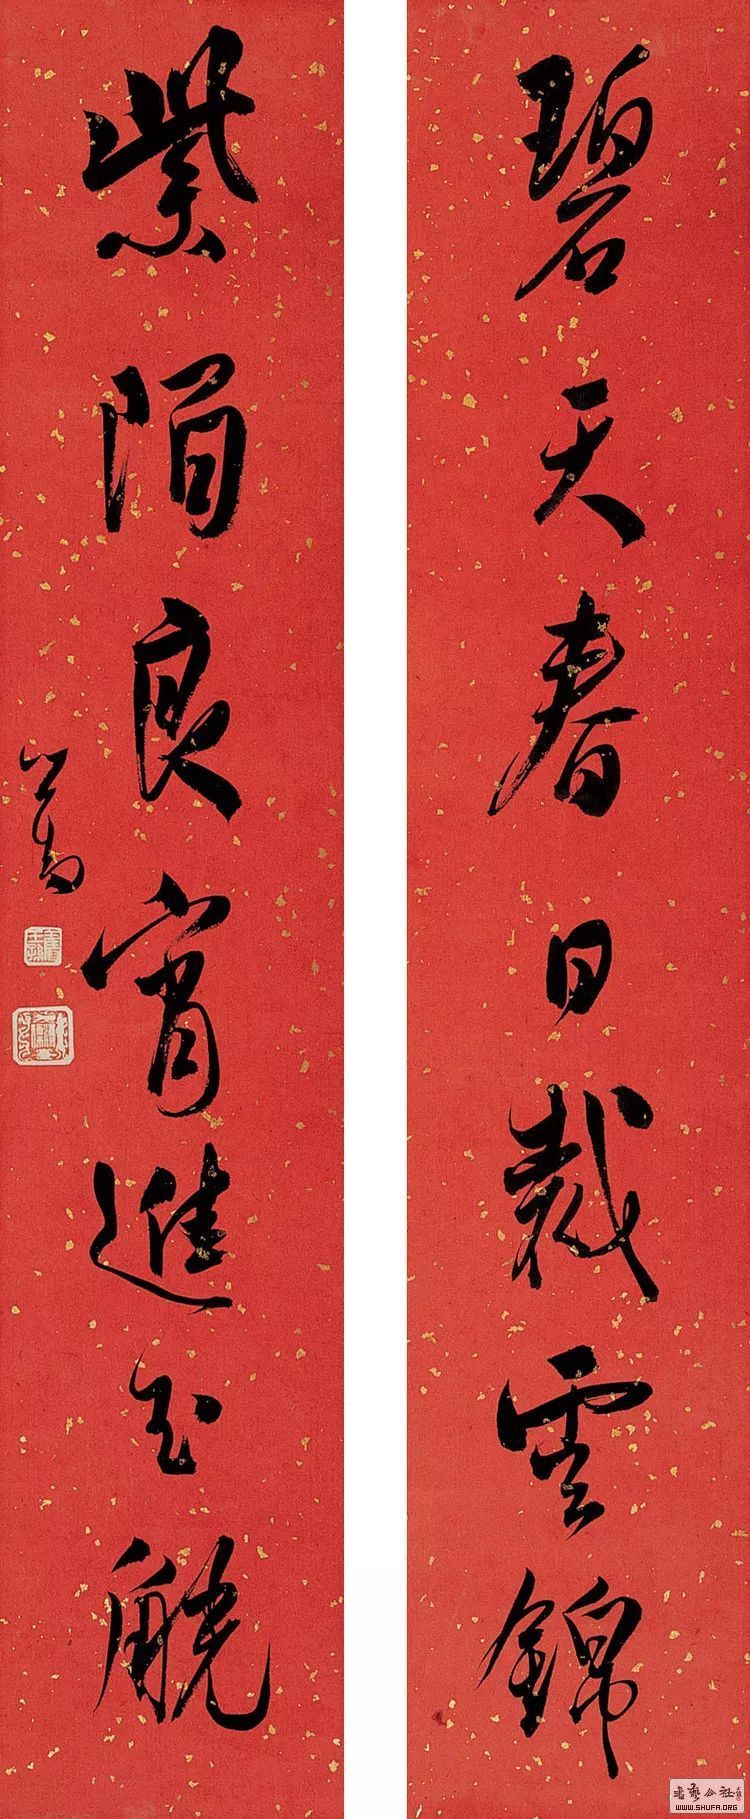 碧天春日裁雲錦
紫陌良宵進玉觥
心畬
舊王孫
書藝公社
WWW.SHUFA.ORG